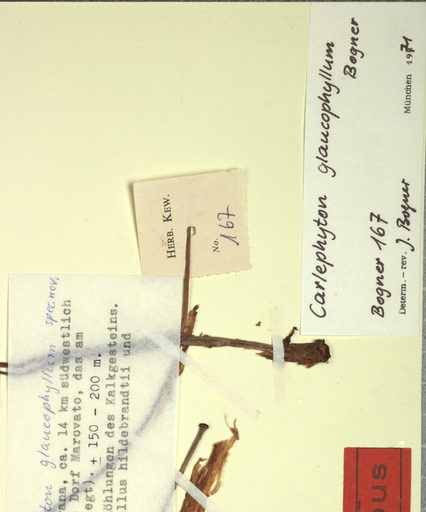 Carlephyton glaucophyllum
Bogner
Bogner 167
Determ. – rev. J. Bogner München 1971
HERB. KEW.
No. 167
ton glaucophyllum spec. nov.
ana, ca. 14 km südwestlich
Dorf Marovato, das am
egt). ± 150 – 200 m.
öhlungen des Kalkgesteins.
llus hildebrandtii und
us